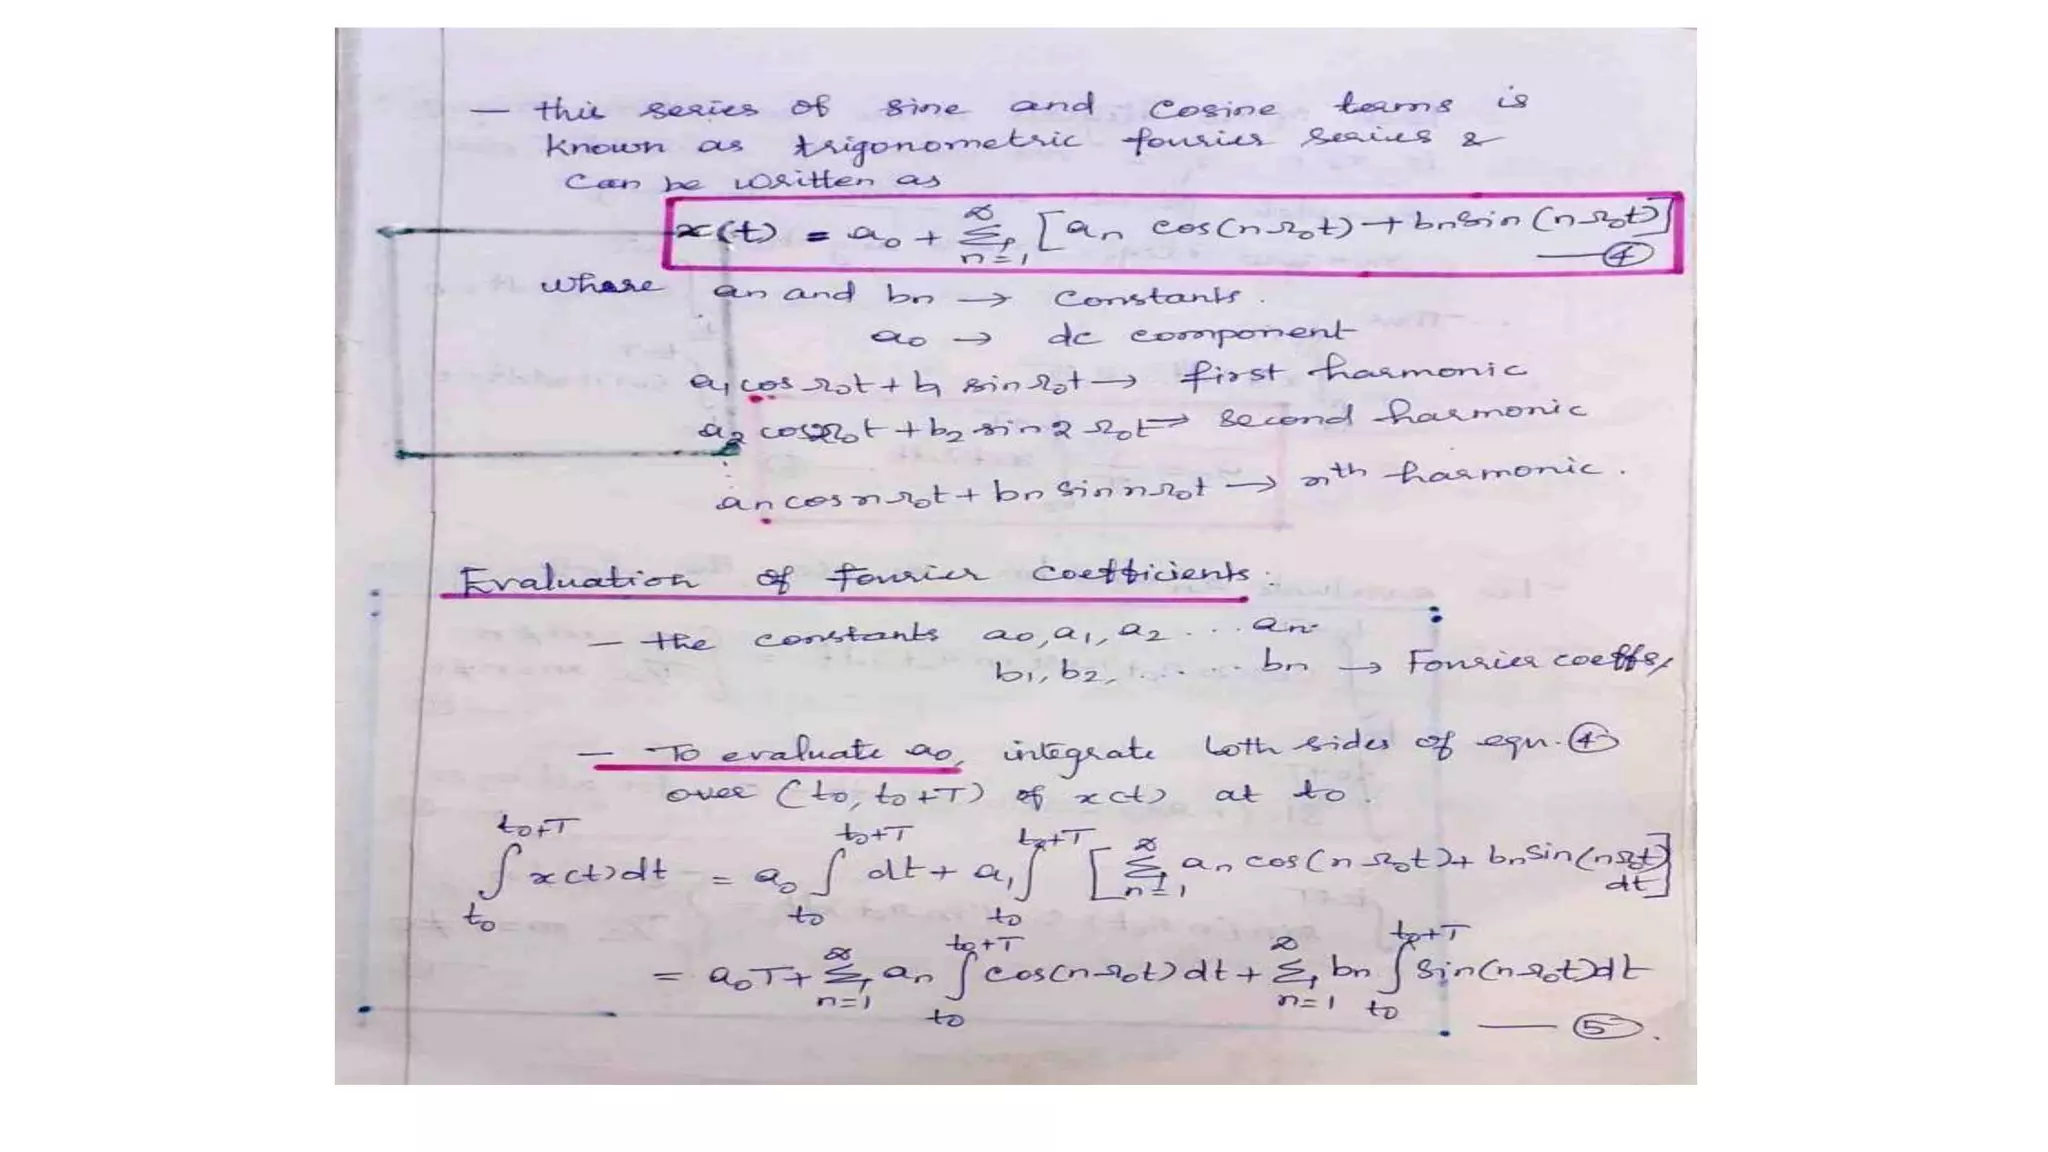 — this series of sine and cosine terms is
known as trigonometric fourier series &
can be written as
x(t) = a₀ + ∑ₙ₌₁^∞ [aₙ cos(nΩ₀t) + bₙ sin(nΩ₀t)]
— ④
where an and bn → constants.
a₀ → dc component
a₁ cos Ω₀t + b₁ sin Ω₀t → first harmonic
a₂ cos2Ω₀t + b₂ sin 2 Ω₀t → second harmonic
an cos n Ω₀t + bn sin n Ω₀t → nth harmonic.
Evaluation of Fourier coefficients:
— the constants a₀, a₁, a₂ ... an
b₁, b₂, ..... bn → Fourier coeffs,
— To evaluate a₀, integrate both sides of eqn. ④
over (t₀, t₀+T) of x(t) at t₀.
∫ₜ₀^(t₀+T) x(t)dt = a₀ ∫ₜ₀^(t₀+T) dt + a₁ ∫ₜ₀^(t₀+T) [∑ₙ₌₁^∞ aₙ cos(nΩ₀t) + bₙ sin(nΩ₀t) dt]
= a₀T + ∑ₙ₌₁^∞ aₙ ∫ₜ₀^(t₀+T) cos(nΩ₀t)dt + ∑ₙ₌₁^∞ bₙ ∫ₜ₀^(t₀+T) sin(nΩ₀t)dt
— ⑤.